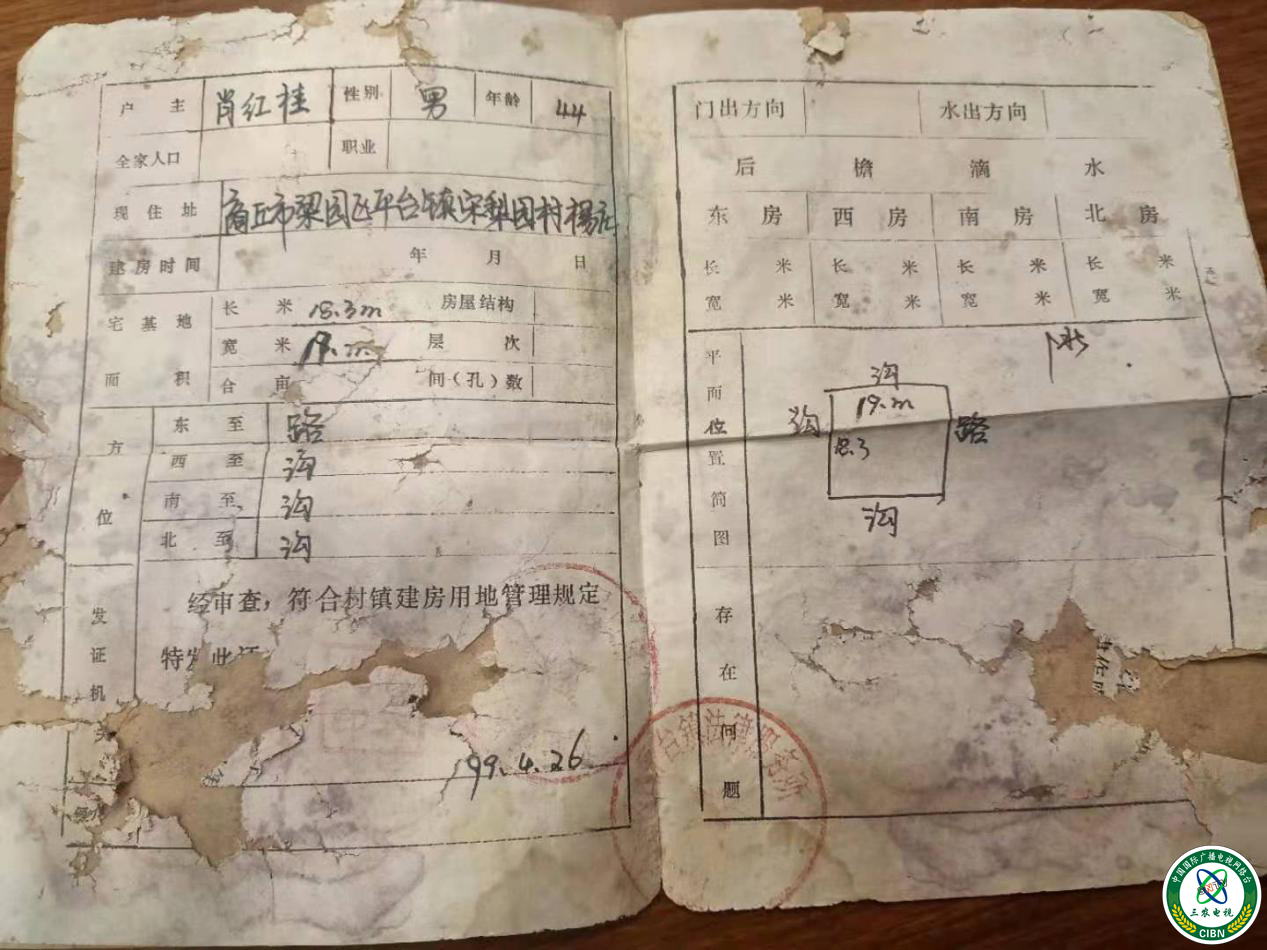 户主 肖红桂 性别 男 年龄 44
全家人口 职业
现住址 商丘市梁园区平台镇宋梨园村杨庄
建房时间 年 月 日
宅基地面积
长 米 18.3m 房屋结构
宽 米 19.m 层次
合 亩 间(孔)数
方位
东至 路
西至 沟
南至 沟
北至 沟
发证机关
经审查,符合村镇建房用地管理规定
特发此证
99.4.26
门出方向 水出方向
后檐滴水
东房 西房 南房 北房
长 米 长 米 长 米 长 米
宽 米 宽 米 宽 米 宽 米
平面位置简图
沟
19.m
沟 路
18.3
沟
存在问题
台镇法律服务所
中国国际广播电视网络台
三农电视
CIBN